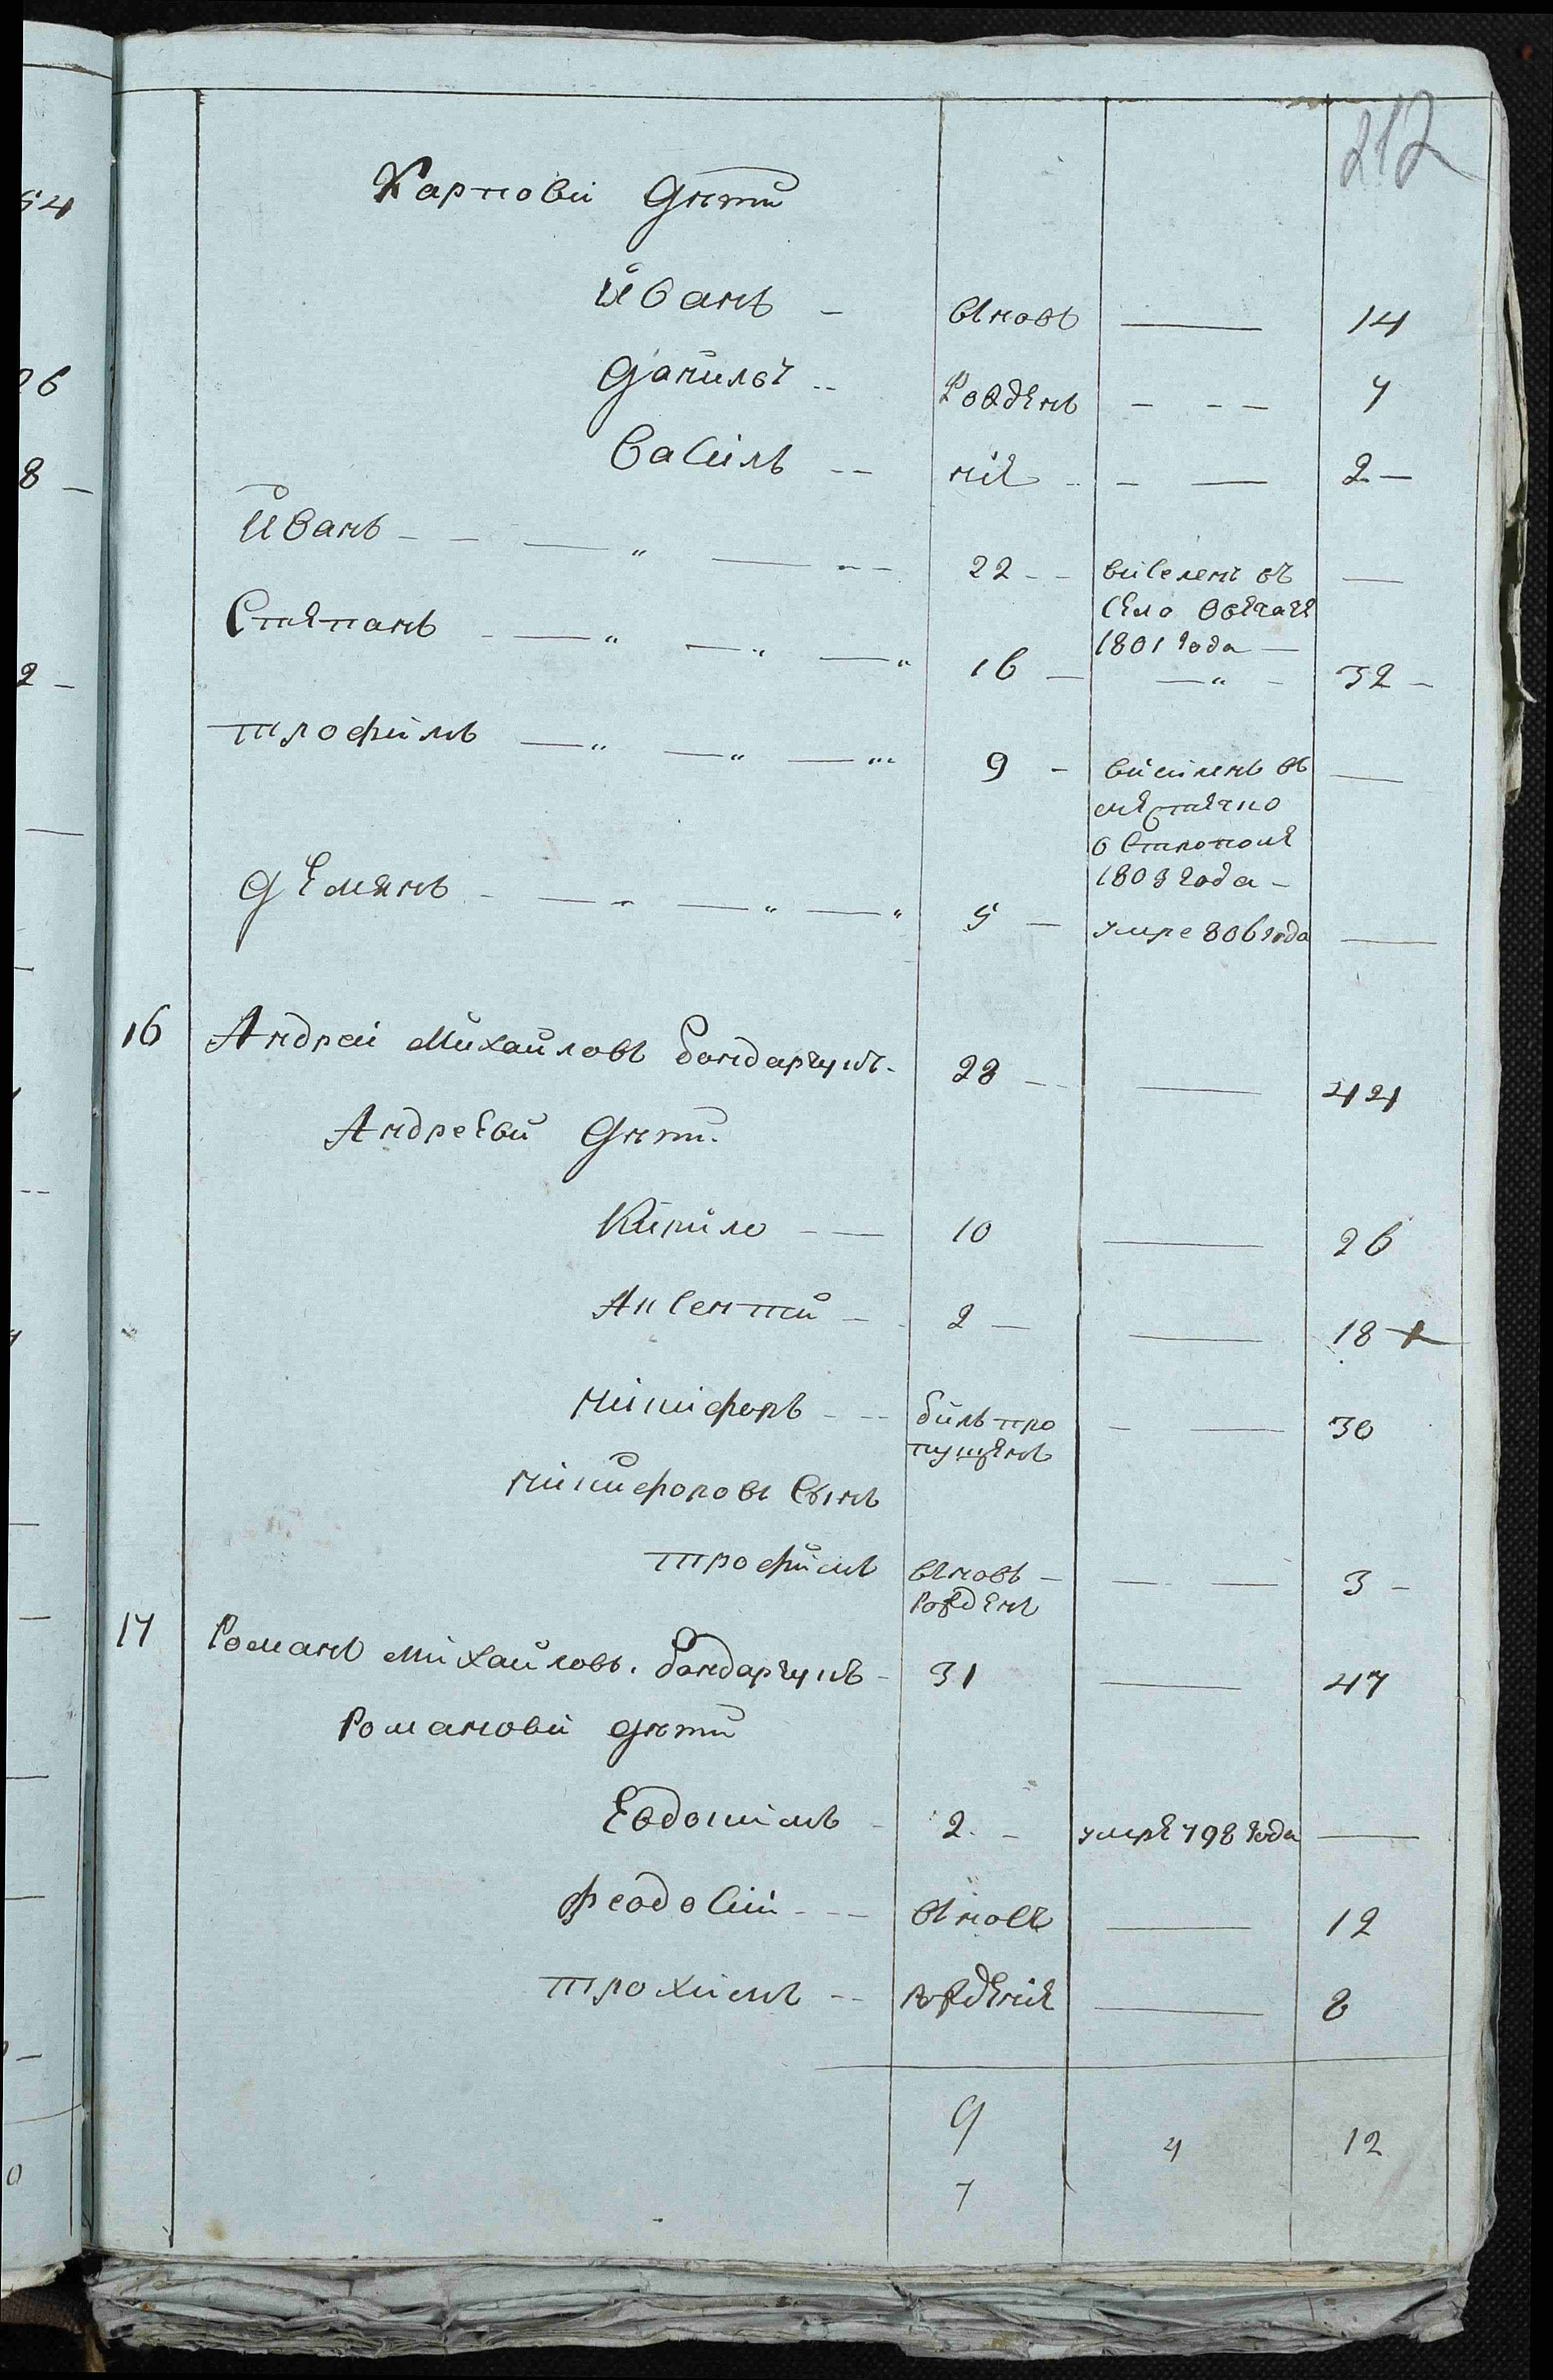 212
Карпови Дѣти
Иванъ - вновъ — 14
Данилъ -- рождены - -- 7
Васілъ -- ніе - — 2 -
Иванъ - - — " — -- 22 - - виселенъ въ —
село
1801 года —
Степанъ - — " — " — " 16 — — " - 32 -
Трофимъ — " — " — " 9 - висиленъ въ —
местечко
1803 года -
Демянъ - — " — " — " 5 — умре 806 года —
16 Андреи Михайловъ Бондарчукъ. 28 -- — 44
Андреевы Дѣти.
Кирило - — 10 — 26
Аксентий - - 2 — — 18 +
Никифоръ - -- билъ про - — 30
пущенъ
Никифоровъ Сынъ
Трофимъ вновъ - — — 3 -
рожденъ
17 Романъ Михайловъ. Бондарчукъ - 31 — 47
Романови дѣти
Евдокимъ - 2. - умре 798 года —
Феодосий - -- вновъ — 12
Трохимъ -- рождение — 8
9 4 12
7